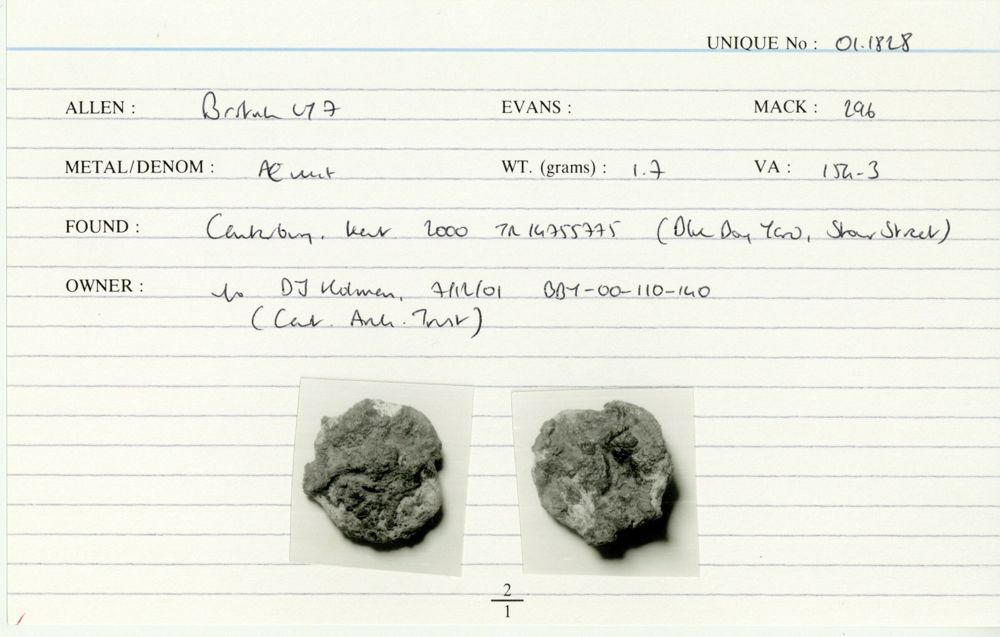 UNIQUE No : 01.1828
ALLEN : British EVANS : MACK : 296
METAL/DENOM : Æ unit WT. (grams) : 1.7 VA : 154-3
FOUND : Canterbury, Kent 2000 TR 14755775 (Blue Boy Yard, Stour Street)
OWNER : DJ Holman, 7/12/01 BBY-00-110-140
(Cant. Arch. Trust)
2
1